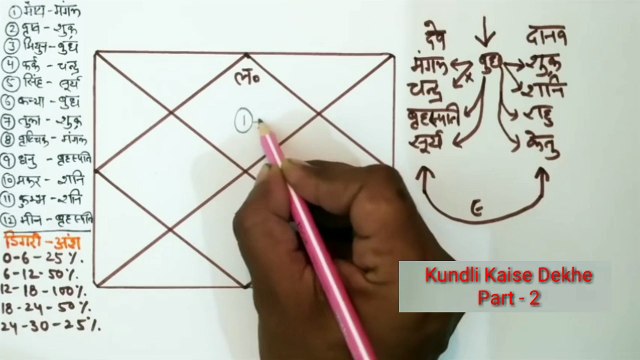 ① मेष - मंगल
② वृष - शुक्र
③ मिथुन - बुध
④ कर्क - चन्द्र
⑤ सिंह - सूर्य
⑥ कन्या - बुध
⑦ तुला - शुक्र
⑧ वृश्चिक - मंगल
⑨ धनु - बृहस्पति
⑩ मकर - शनि
⑪ कुम्भ - शनि
⑫ मीन - बृहस्पति
डिगरी - अंश
0-6-25%.
6-12-50%.
12-18-100%.
18-24-50%.
24-30-25%.
ल०
①
देव दानव
मंगल बुध शुक्र
चन्द्र शनि
बृहस्पति राहु
सूर्य केतु
Kundli Kaise Dekhe
Part - 2